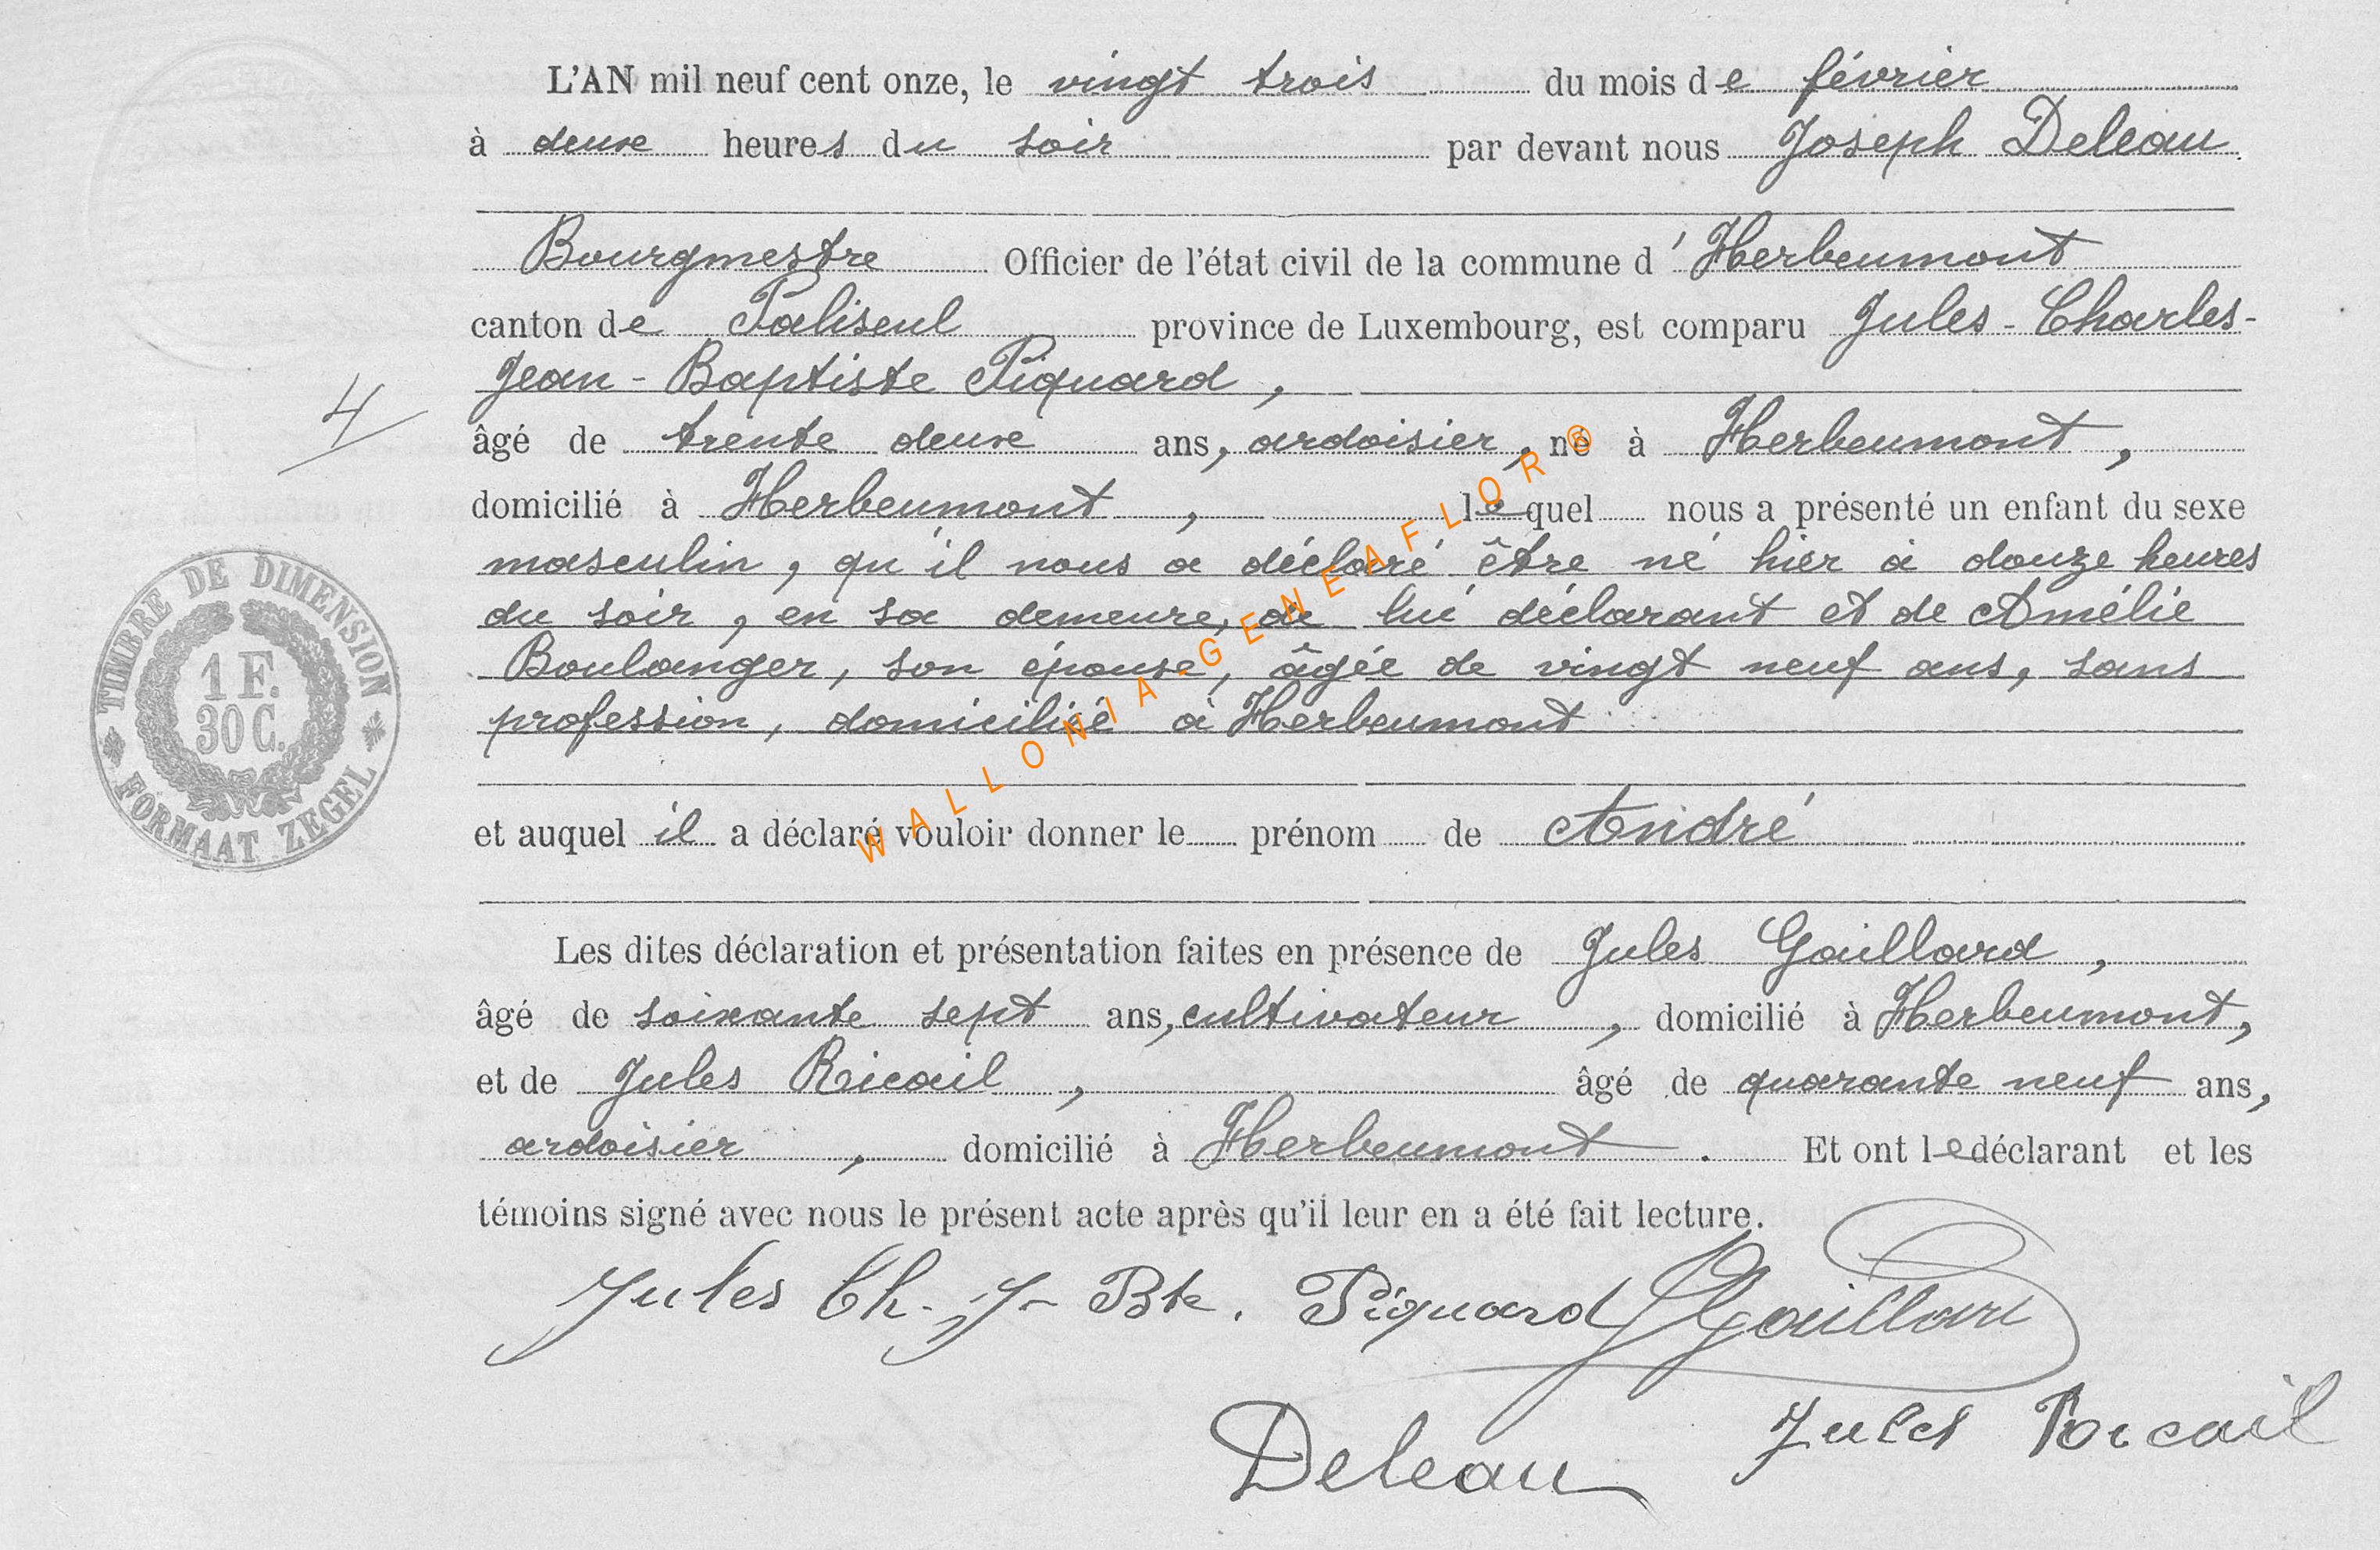 L'AN mil neuf cent onze, le vingt trois du mois de février
à deux heures du soir par devant nous Joseph Deleau
Bourgmestre Officier de l'état civil de la commune d'Herbeumont
canton de Paliseul province de Luxembourg, est comparu Jules-Charles-
Jean-Baptiste Piquard,
âgé de trente deux ans, ardoisier, né à Herbeumont,
domicilié à Herbeumont, lequel nous a présenté un enfant du sexe
masculin, qu'il nous a déclaré être né hier à douze heures
du soir, en sa demeure, de lui déclarant et de Amélie
Boulanger, son épouse, âgée de vingt neuf ans, sans
profession, domiciliée à Herbeumont
et auquel il a déclaré vouloir donner le prénom de André
Les dites déclaration et présentation faites en présence de Jules Gaillard,
âgé de soixante sept ans, cultivateur, domicilié à Herbeumont,
et de Jules Ricail, âgé de quarante neuf ans,
ardoisier, domicilié à Herbeumont. Et ont le déclarant et les
témoins signé avec nous le présent acte après qu'il leur en a été fait lecture.
Jules Ch. J- Bte. Piquard Gaillard
Deleau Jules Ricail
4
TIMBRE DE DIMENSION
1 F.
30 C.
FORMAAT ZEGEL
WALLONIA-GENEAFLOR®